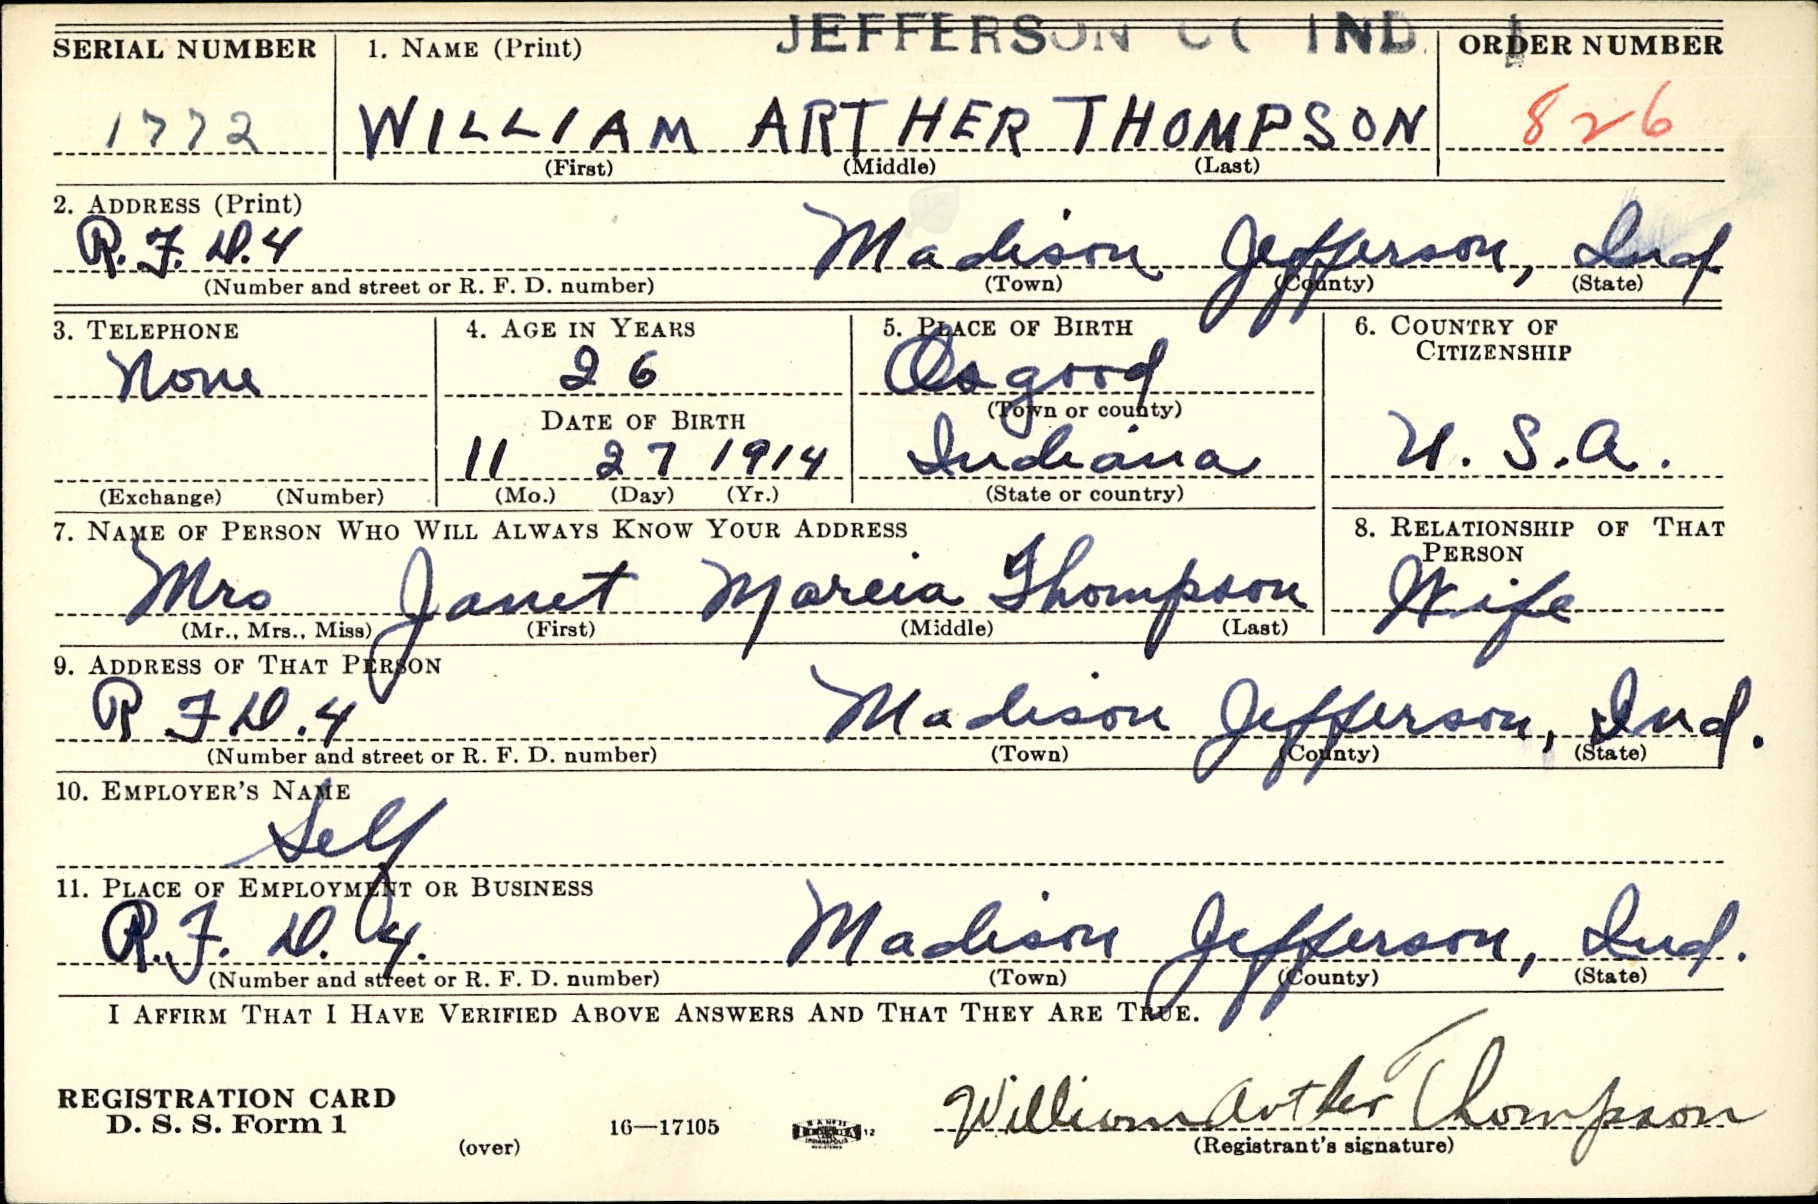 JEFFERSON CO IND. 1
SERIAL NUMBER 1. NAME (Print) ORDER NUMBER
1772 WILLIAM ARTHER THOMPSON 826
(First) (Middle) (Last)
2. ADDRESS (Print)
R.F.D.4 Madison Jefferson, Ind
(Number and street or R. F. D. number) (Town) (County) (State)
3. TELEPHONE 4. AGE IN YEARS 5. PLACE OF BIRTH 6. COUNTRY OF
CITIZENSHIP
None 26 Osgood
(Town or county)
DATE OF BIRTH
11 27 1914 Indiana U.S.A.
(Exchange) (Number) (Mo.) (Day) (Yr.) (State or country)
7. NAME OF PERSON WHO WILL ALWAYS KNOW YOUR ADDRESS 8. RELATIONSHIP OF THAT
PERSON
Mrs Janet Marcia Thompson Wife
(Mr., Mrs., Miss) (First) (Middle) (Last)
9. ADDRESS OF THAT PERSON
R F.D.4 Madison Jefferson, Ind.
(Number and street or R. F. D. number) (Town) (County) (State)
10. EMPLOYER'S NAME
Self
11. PLACE OF EMPLOYMENT OR BUSINESS
R.F. D. 4. Madison Jefferson, Ind.
(Number and street or R. F. D. number) (Town) (County) (State)
I AFFIRM THAT I HAVE VERIFIED ABOVE ANSWERS AND THAT THEY ARE TRUE.
REGISTRATION CARD
D. S. S. Form 1
(over) 16—17105 12 William Arther Thompson
(Registrant's signature)